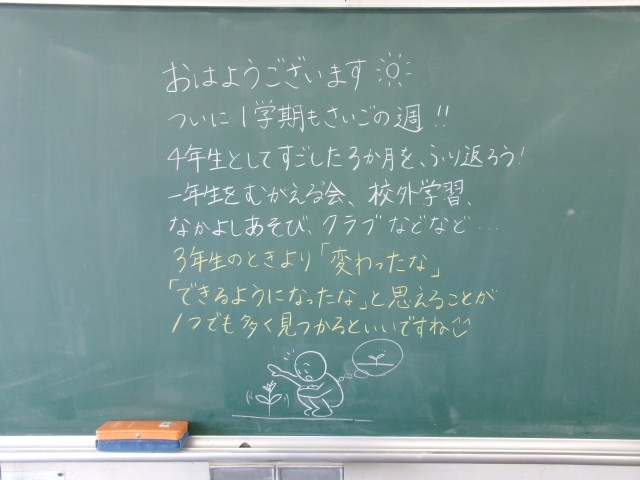 おはようございます
ついに1学期もさいごの週!!
4年生としてすごした3か月を、ふり返ろう!
一年生をむかえる会、校外学習、
なかよしあそび、クラブなどなど…
3年生のときより「変わったな」
「できるようになったな」と思えることが
1つでも多く見つかるといいですね